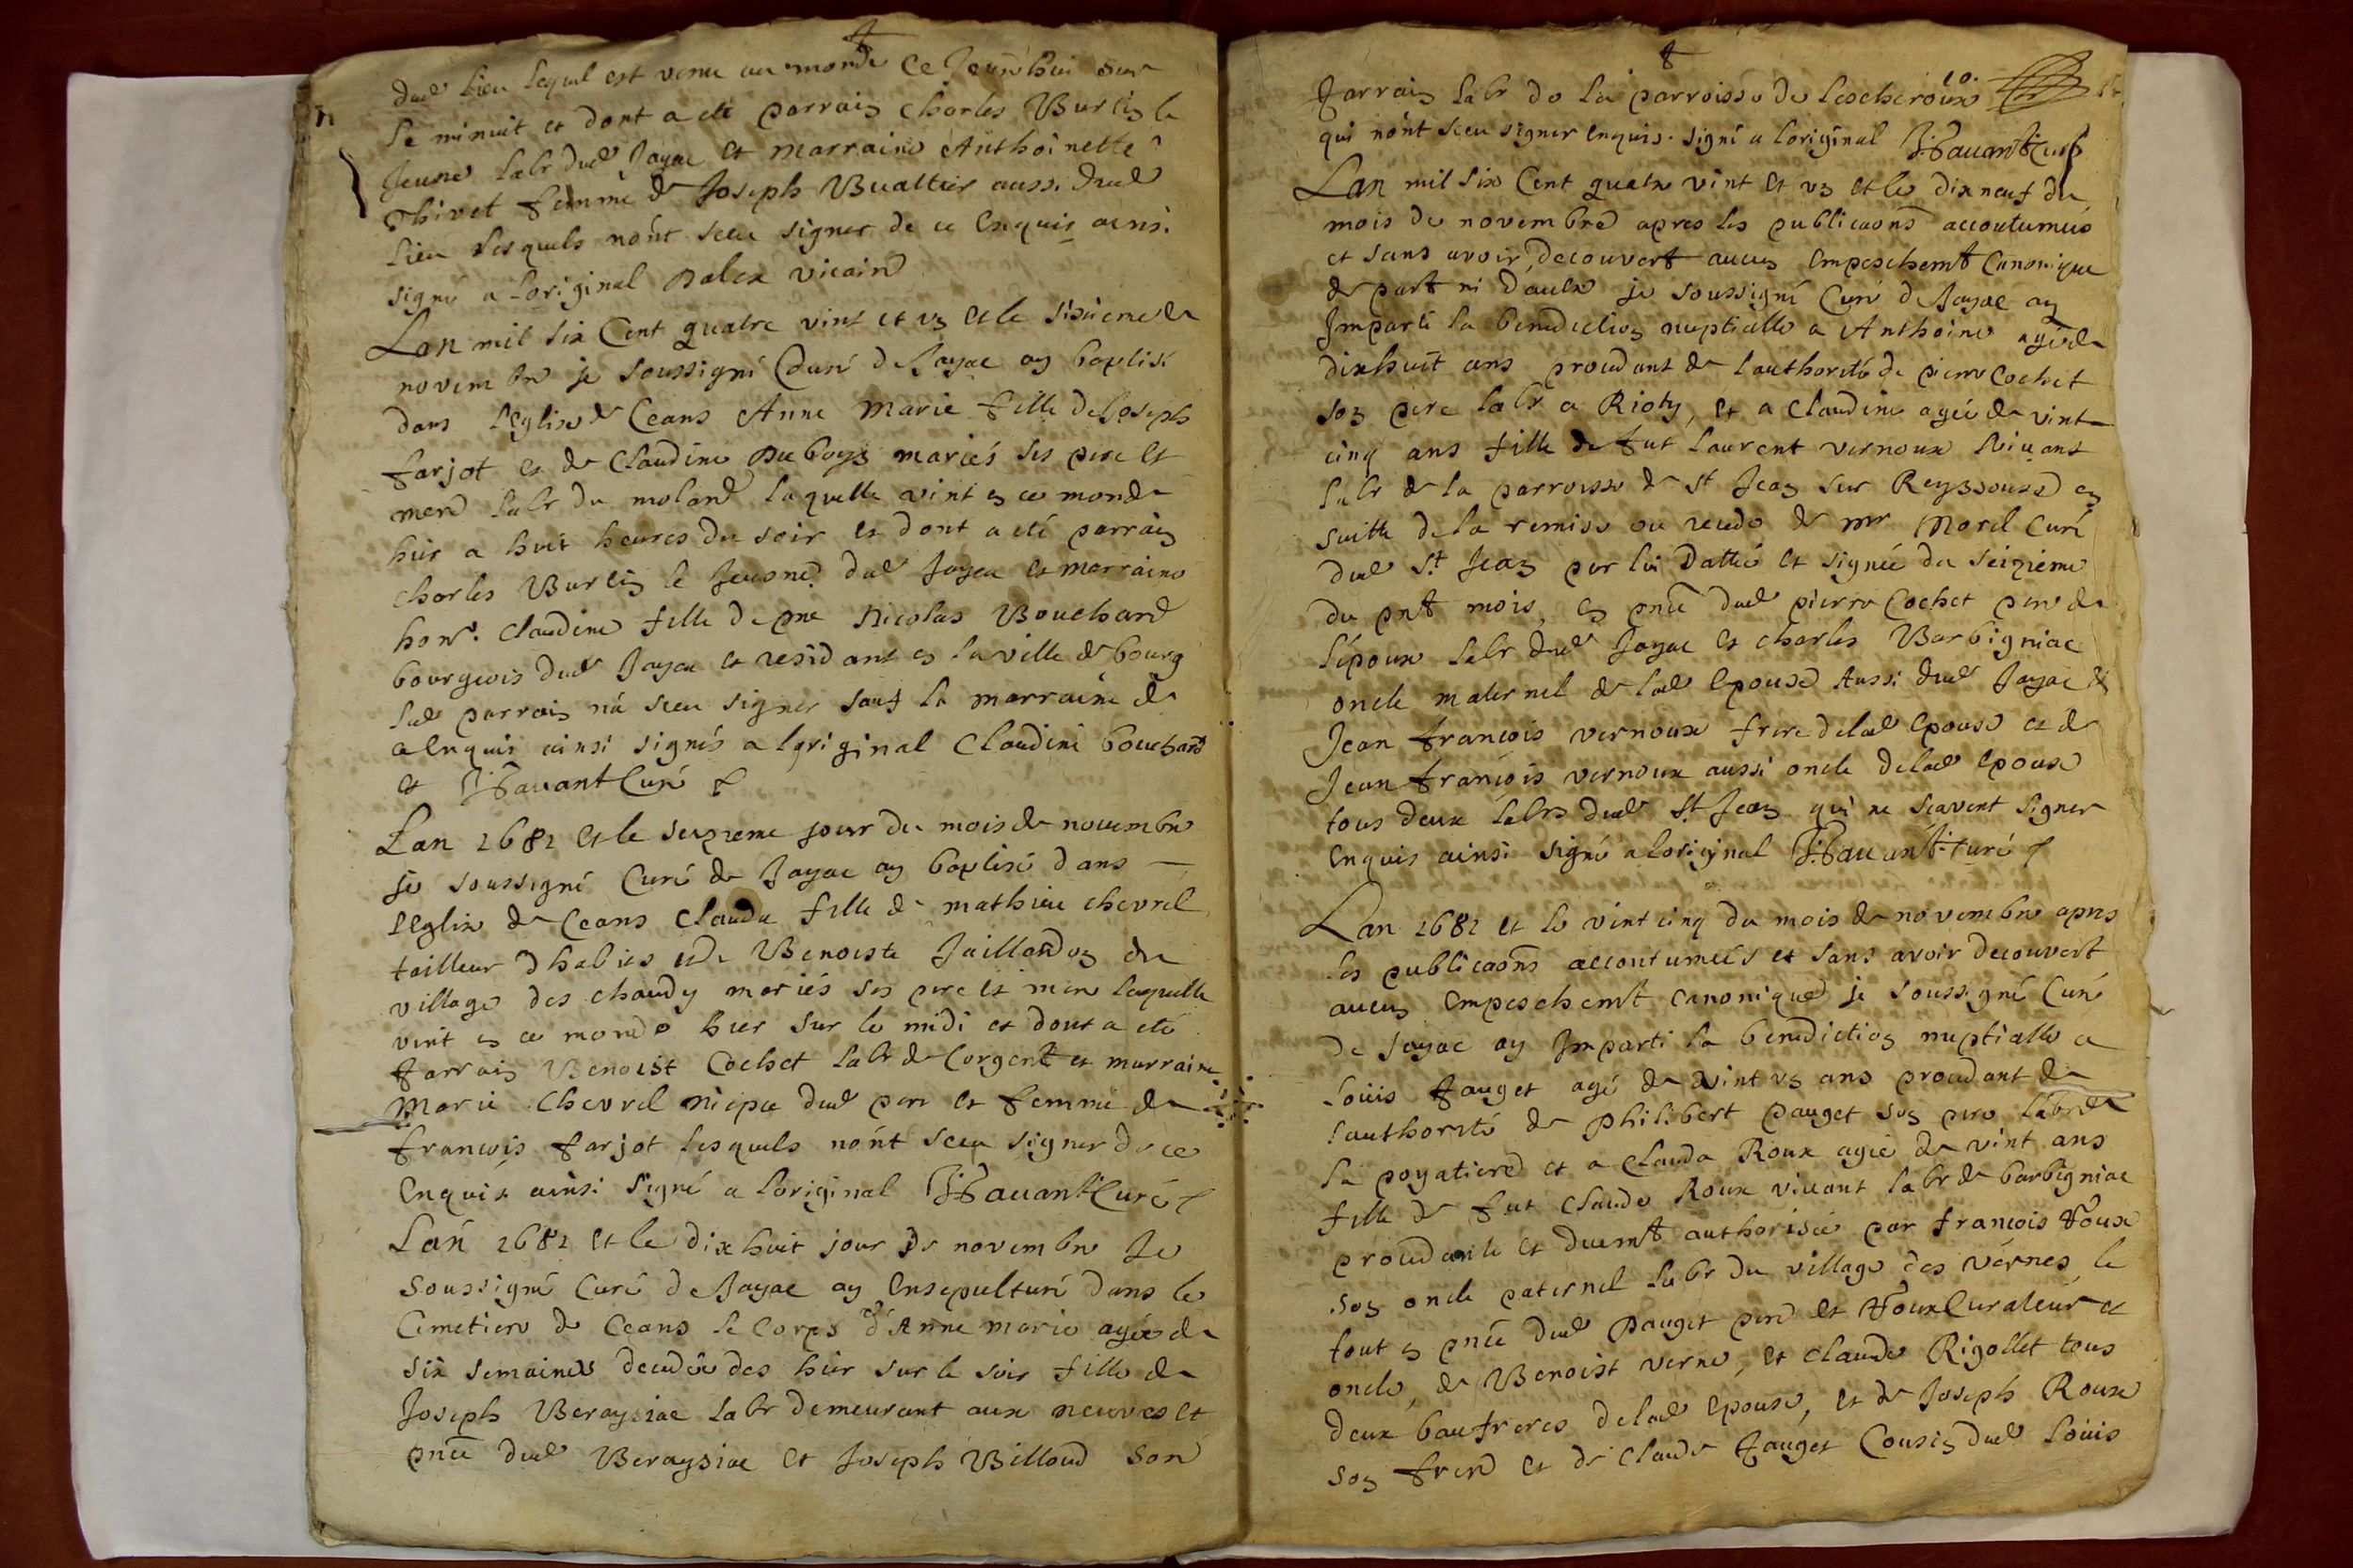 dud lieu lequel est venu au monde ce jourdhui sur
le minuit et dont a eté parrain Charles Burtin le
jeune labr dud Jayac et marraine Anthoinette
Thivet femme de Joseph Vualtier aussi dud
lieu lesquels nont sceu signer de ce enquis ainsi
signé a loriginal vicaire
Lan mil six Cent quatre vint et un et le sixieme de
novembre je soussigné Curé de Jayac ay baptisé
dans leglise de Ceans Anne Marie fille de Joseph
farjot et de Claudine Duboys mariés ses pere et
mere labr du moland laquelle vint en ce monde
hier a huit heures du soir et dont a eté parrain
charles Burtin le jeusne dud Jayac et marraine
honr. Claudine fille de me Nicolas Bouchard
bourgeois dud Jayac et residant en la ville de bourg
led parrain n'a sceu signer sauf la marraine de
ce enquis ainsi signés a loriginal Claudine bouchard
et F. Favant Curé
Lan 1681 et le seizieme jour du mois de novembre
je soussigné Curé de Jayac ay baptisé dans
leglise de Ceans Clauda fille de mathieu chevrel
tailleur dhabits et de Benoiste Jaillardon du
village des chaudy mariés ses pere et mere laquelle
vint en ce monde hier sur le midi et dont a eté
Parrain Benoist Cochet labr de Corgent et marraine
Marie Chevrel niepce dud pere et femme de
françois farjot lesquels nont sceu signer de ce
Enquis ainsi signé a loriginal F. Favant Curé
Lan 1681 et le dixhuit jour de novembre Je
soussigné Curé de Jayac ay Ensepulturé dans le
Cimetiere de Ceans le Corps d'Anne marie agée de
six semaines decedée des hier sur le soir fille de
Joseph Beraysiac labr demeurant aux neuves et
pnce dud Beraysiac et Joseph Billoud son
10.
Parrain labr de la parroisse de Lescheroux
qui nont sceu signer enquis. signé a loriginal F. Favant Curé
Lan mil six Cent quatre vint et un et le dix neuf du
mois de novembre apres les publicaons accoutumées
et sans avoir decouvert aucun Empeschemt Canonique
de part ni daultre je soussigné Curé de Jayac ay
Imparti la benediction nuptialle a Anthoine agé de
dixhuit ans procedant de lauthorité de pierre Cochet
son pere labr a Rioty, et a Claudine agée de vint
cinq ans fille de fut Laurent vernoux vivant
labr de la parroisse de St Jean sur Reyssouse en
suitte de la remise ou recedo de mr Morel Curé
dud St Jean par lui dattée et signée du seizieme
du pnt mois, en pnce dud pierre Cochet pere de
l'époux labr dud Jayac et charles Barbigniac
oncle maternel de lad epouse Aussi dud Jayac et
Jean françois vernoux frere de lad epouse et de
Jean françois vernoux aussi oncle de lad epouse
tous deux labrs dud St Jean qui ne scavent signer
Enquis ainsi signé a loriginal F. Favant Curé
Lan 1681 et le vint cinq du mois de novembre apres
les publicaons accoutumées et sans avoir decouvert
aucun Empeschemt Canonique je soussigné Curé
de Jayac ay Imparti la benediction nuptialle a
Loüis Pauget agé de vint un ans procedant de
lauthorité de Philibert Pauget son pere labr de
la poyatiere et a Clauda Roux agée de vint ans
fille de fut Claude Roux vivant labr de barbigniac
procedante et duemt authorisée par françois Roux
son oncle paternel labr du village des vernes le
tout en pnce dud Pauget pere et Roux Curateur et
oncle, de Benoist verne, et Claude Rigollet tous
deux baufreres de lad epouse, et de Joseph Roux
son frere et de Claude Pauget Cousin dud Loüis